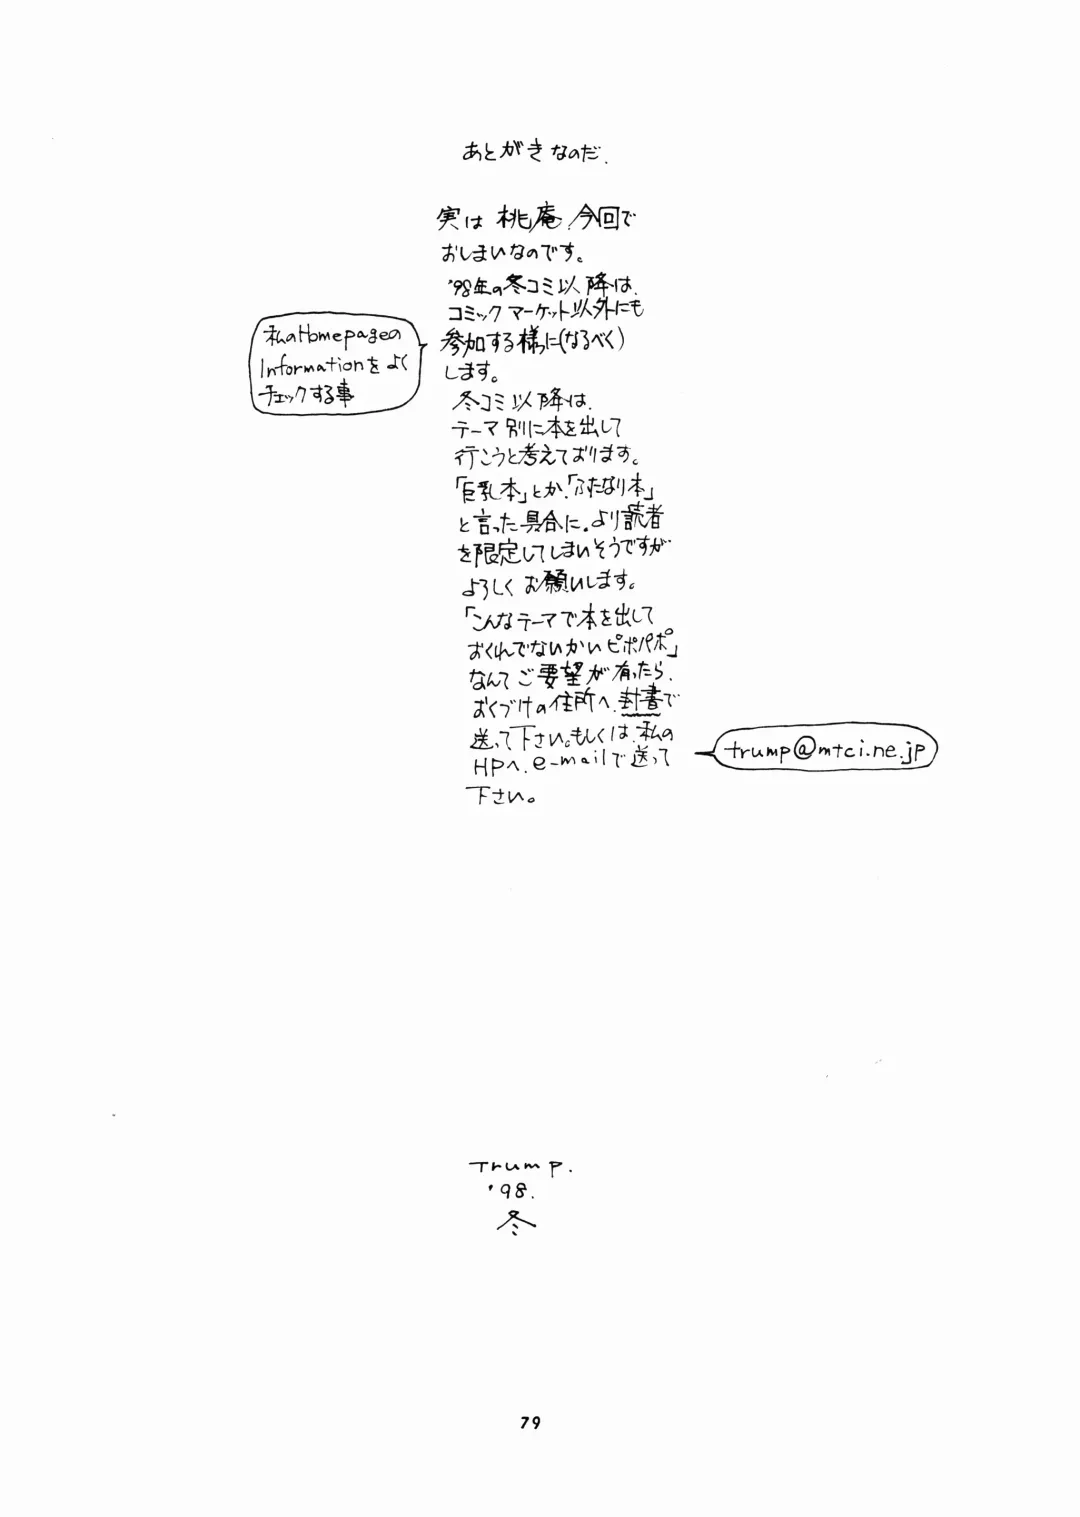 あとがきなのだ.
実は 桃庵.今回で
おしまいなのです。
'98年の冬コミ以降は.
コミックマーケット以外にも
参加する様に(なるべく)
します。
私のHomepageの
Informationを よく
チェックする事
冬コミ以降は.
テーマ別に本を出して
行こうと考えております。
「巨乳本」とか.「ふたなり本」
と言った具合に.より読者
を限定してしまいそうですが
よろしく お願いします。
「こんなテーマで本を出して
おくれでないかいピポパポ」
なんてご要望が有ったら.
おくづけの住所へ.封書で
送って下さい。もしくは.私の
HPへ.e-mailで送って
下さい。
trump@mtci.ne.jp
Trump.
'98.
冬
79